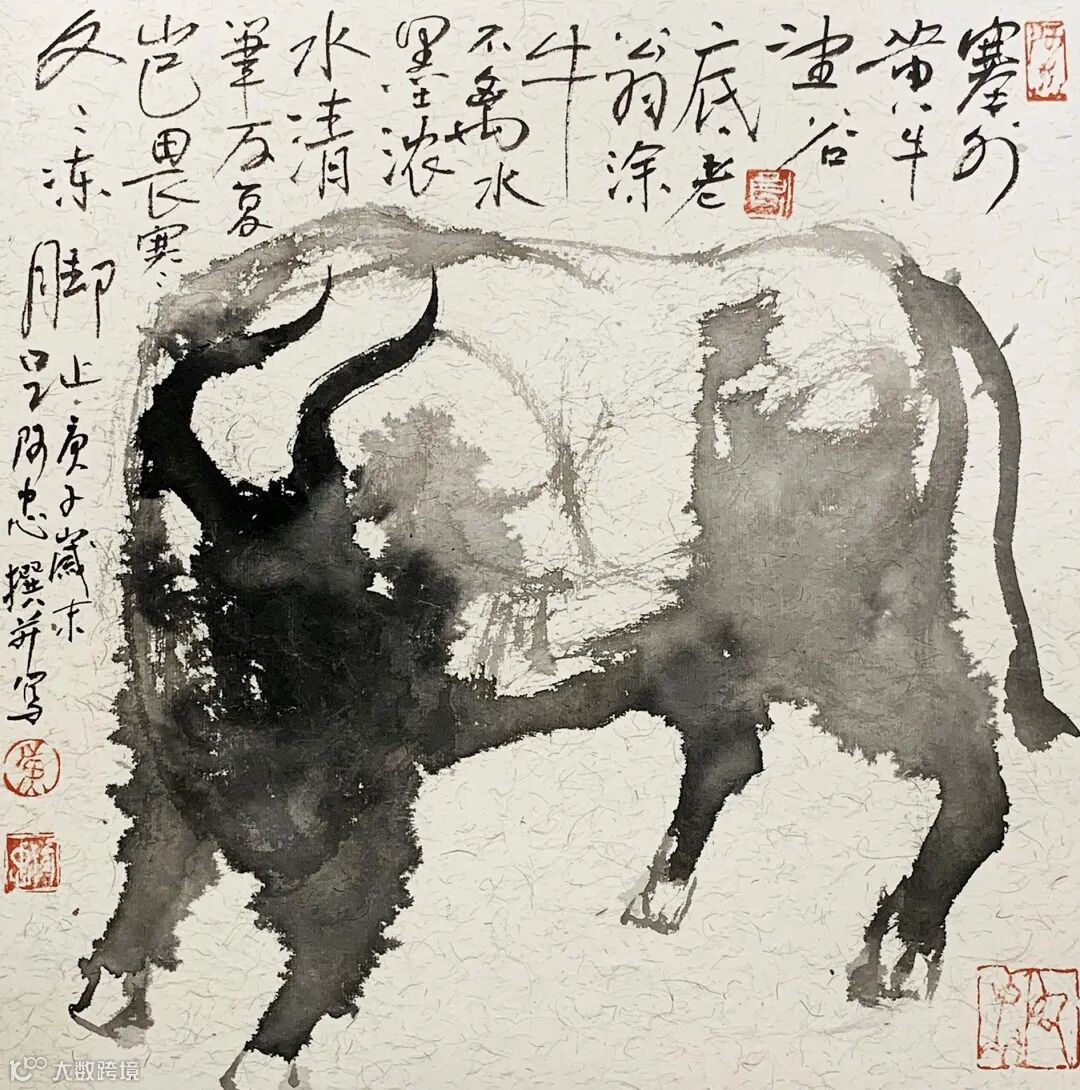 塞外
黄牛
洼谷
底老
翁涂
牛
不离水
墨浓
水清
筆反复
岂畏寒
冬冻
脚
趾庚子岁末
阿忠撰并写
大数跨境